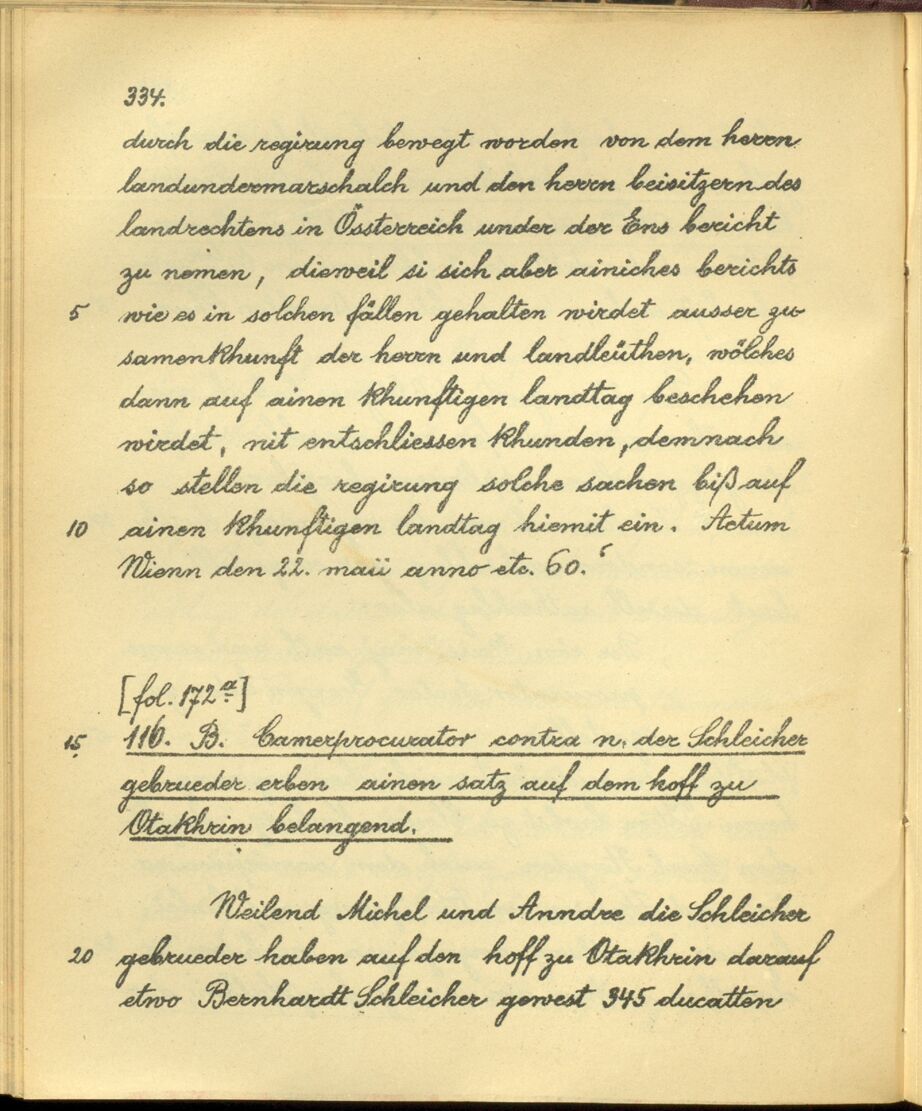 334.
durch die regirung bewegt worden von dem herrn
landundermarschalch und den herrn beisitzern des
landrechtens in Össterreich under der Ens bericht
zu nemen, dieweil si sich aber ainiches berichts
5 wie es in solchen fällen gehalten wirdet ausser zu-
samenkhunft der herrn und landleüthen, wölches
dann auf ainen khunftigen landtag beschehen
wirdet, nit entschliessen khunden, demnach
so stellen die regirung solche sachen biß auf
10 ainen khunftigen landtag hiemit ein. Actum
Wienn den 22. maii anno etc. 60.
[fol. 172a]
15 116. B. Camerprocurator contra n. der Schleicher
gebrueder erben ainen satz auf dem hoff zu
Otakhrin belangend.
Weilend Michel und Anndre die Schleicher
20 gebrueder haben auf den hoff zu Otakhrin darauf
etwo Bernhardt Schleicher gewest 345 ducatten